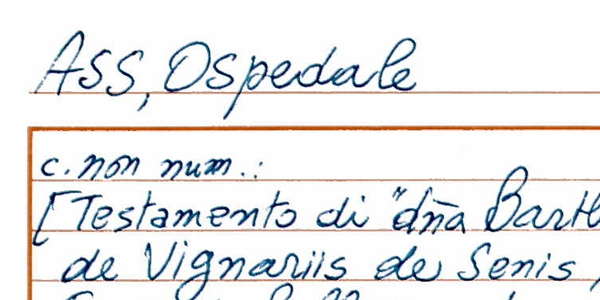 ASS, Ospedale
c. non num.:
[Testamento di "dña
de Vignariis de Senis,